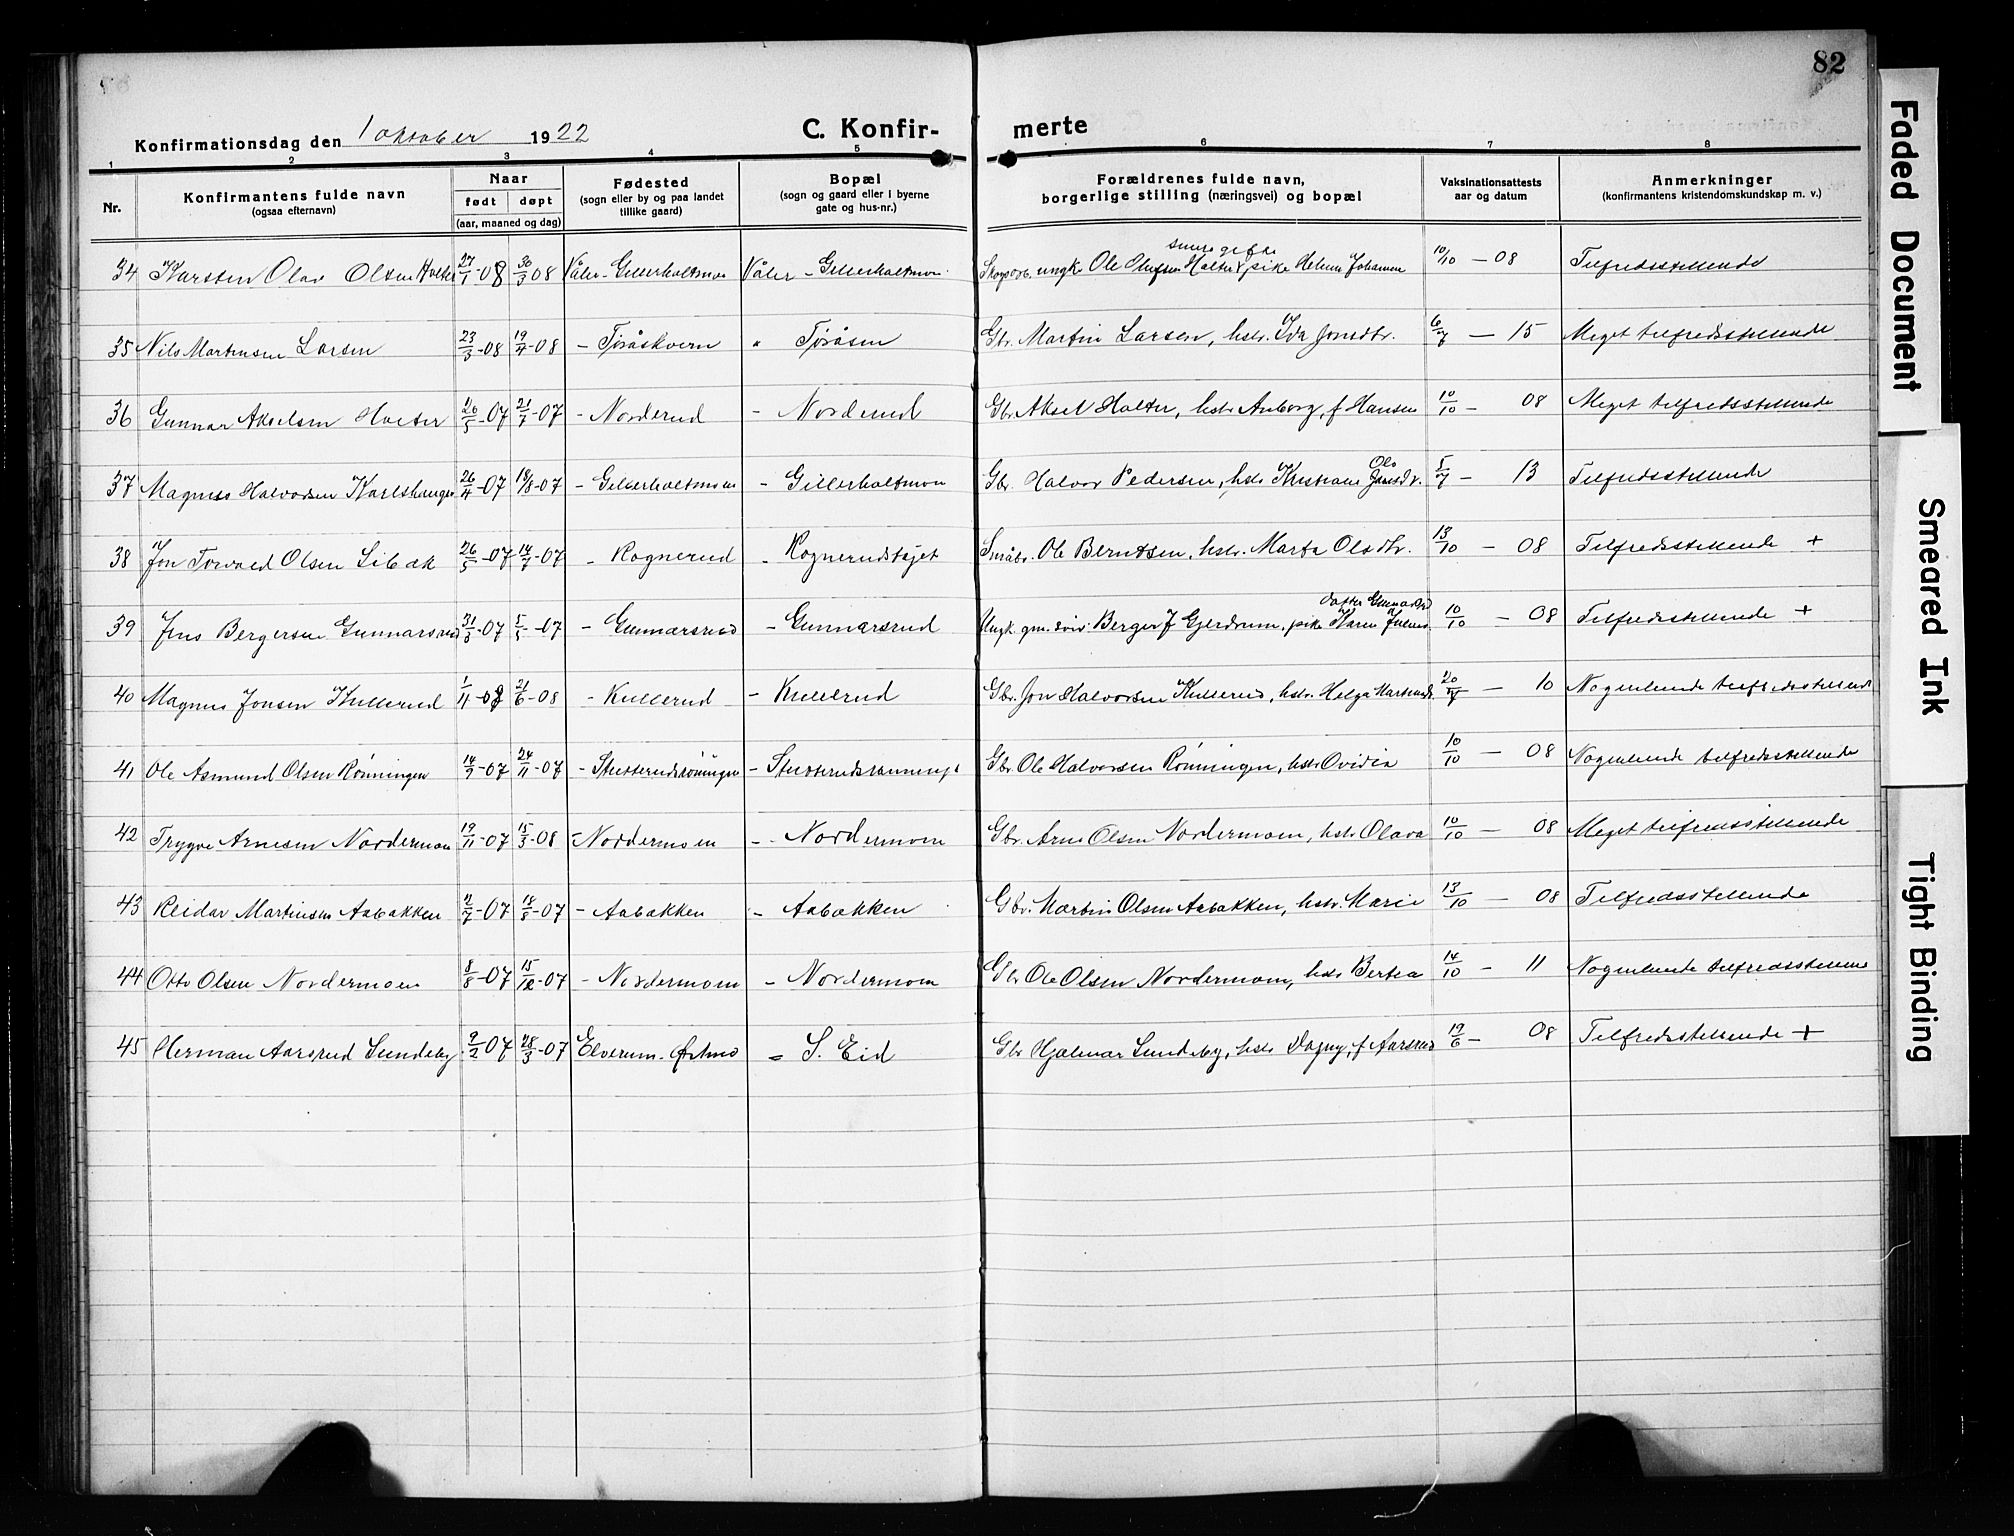 82
Konfirmationsdag den 1 oktober 1922
C. Konfir- merte
1 2 3 4 5 6 7 8
Nr. Konfirmantens fulde navn (ogsaa efternavn) Naar født døpt (aar, maaned og dag) Fødested (sogn eller by og paa landet tillike gaard) Bopæl (sogn og gaard eller i byerne gate og hus-nr.) Forældrenes fulde navn, borgerlige stilling (næringsvei) og bopæl Vaksinationsattests aar og datum Anmerkninger (konfirmantens kristendomskundskap m. v.)
34 Karsten Olav Olsen Holter 27/1-08 30/3 08 Våler - Gillerholtmoen Våler - Gillerholtmoen Skogsarb. ungk. Ole Olufsen Holter, pike Helene Johansen 10/10 - 08 Tilfredsstillende
35 Nils Martinsen Larsen 23/3-08 19/4-08 - Tjråskvern " Tjråsen Gbr. Martin Larsen, hstr. Ida Jonsdtr. 6/7 - 15 Meget tilfredsstillende
36 Gunnar Akselsen Holter 20/5-07 21/7-07 - Norderud - Norderud Gbr. Aksel Holter, hstr. Anborg, f. Hansen 10/10 - 08 Meget tilfredsstillende
37 Magnus Halvorsen Karlshaugen 26/4-07 18/8-07 - Gillerholtmoen - Gillerholtmoen Gbr. Halvor Pedersen, hstr. Kristiane 5/7 - 13 Tilfredsstillende
38 Jon Torvald Olsen Libak 26/5-07 14/7-07 - Rognerud - Rognerudstøjet Småbr. Ole Berntsen, hstr. Marta Olsdtr. 13/10 - 08 Tilfredsstillende +
39 Jens Bergersen Gunnarsrud 31/3-07 5/5-07 - Gunnarsrud - Gunnarsrud Ungk. Berger J Gjerdrum, pike Karen 10/10 - 08 Tilfredsstillende +
40 Magnus Jonsen Kullerud 1/11-07 21/6-08 - Kullerud - Kullerud Gbr. Jon Halvorsen Kullerud, hstr. Helga Martinsd. 20/7 - 10 Nogenlunde tilfredsstillende
41 Ole Asmund Olsen Rønningen 14/9-07 24/11-07 - Stutterudrønningen - Stutterudrønningen Gbr. Ole Halvorsen Rønningen, hstr. Ovidia 10/10 - 08 Nogenlunde tilfredsstillende
42 Trygve Arnesen Nordermoen 19/11-07 15/3-08 - Nordermoen - Nordermoen Gbr. Arne Olsen Nordermoen, hstr. Olava 10/10 - 08 Meget tilfredsstillende
43 Reidar Martinsen Aabakken 2/7-07 18/8-07 - Aabakken - Aabakken Gbr. Martin Olsen Aabakken, hstr. Marie 13/10 - 08 Tilfredsstillende
44 Otto Olsen Nordermoen 8/8-07 15/12-07 - Nordermoen - Nordermoen Gbr Ole Olsen Nordermoen, hstr. Bertea 14/10 - 11 Nogenlunde tilfredsstillende
45 Herman Aarsrud Sundeby 9/2 07 28/3-07 Elverum - S. Eid Gbr Hjalmar Sundeby, hstr Dagny, f. Aarsrud 19/6 - 08 Tilfredsstillende +
Faded Document
Smeared Ink
Tight Binding